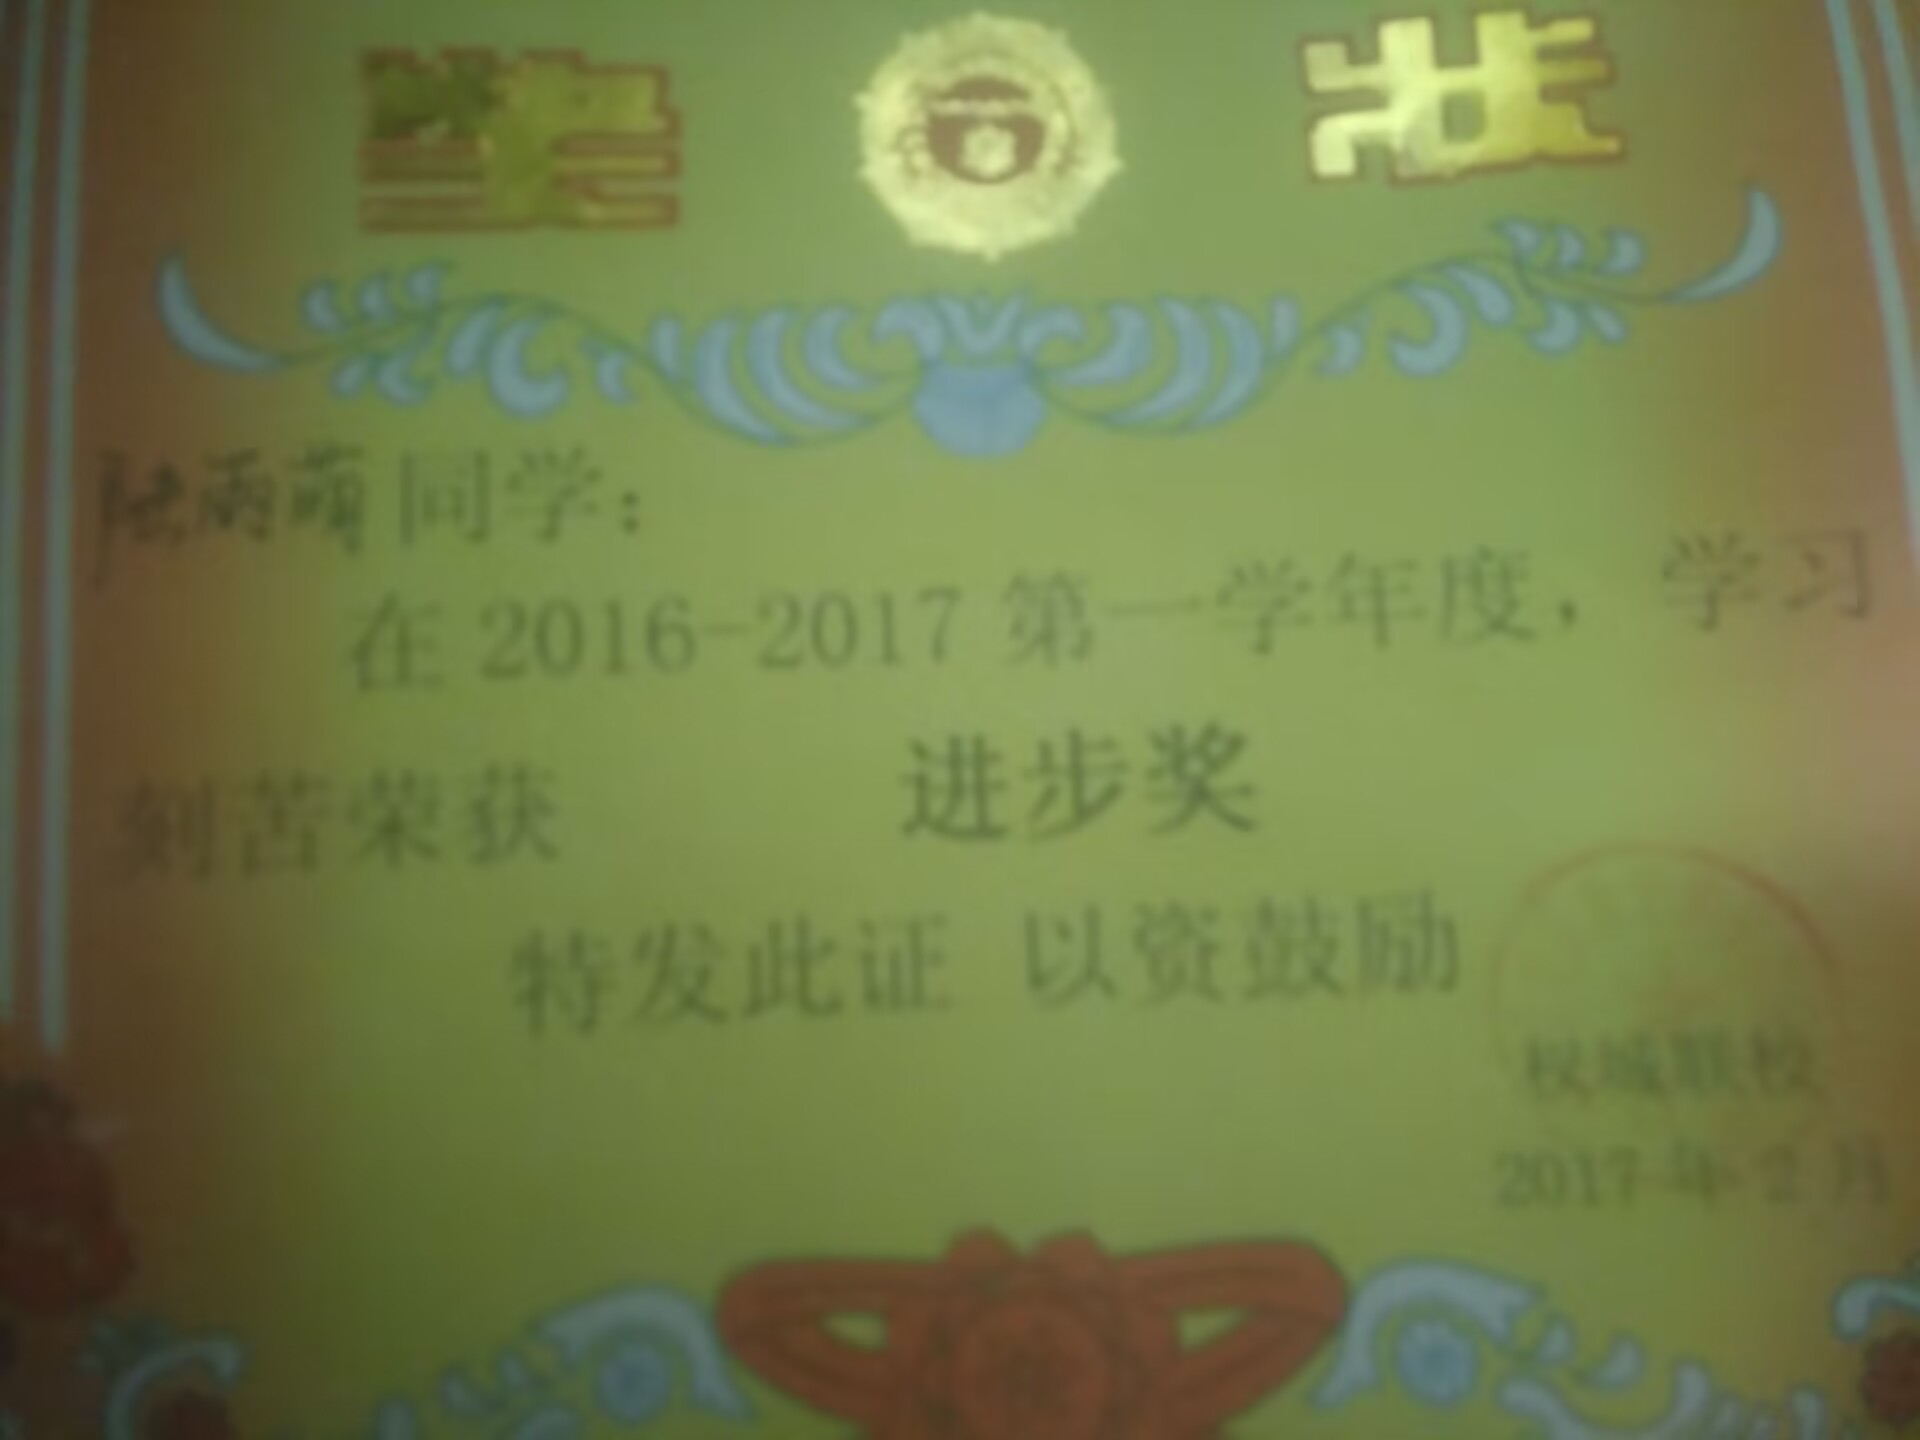 奖 状
陆雨萌同学：
在 2016-2017 第一学年度， 学习
刻苦荣获 进步奖
特发此证 以资鼓励
权城联校
2017 年 2 月